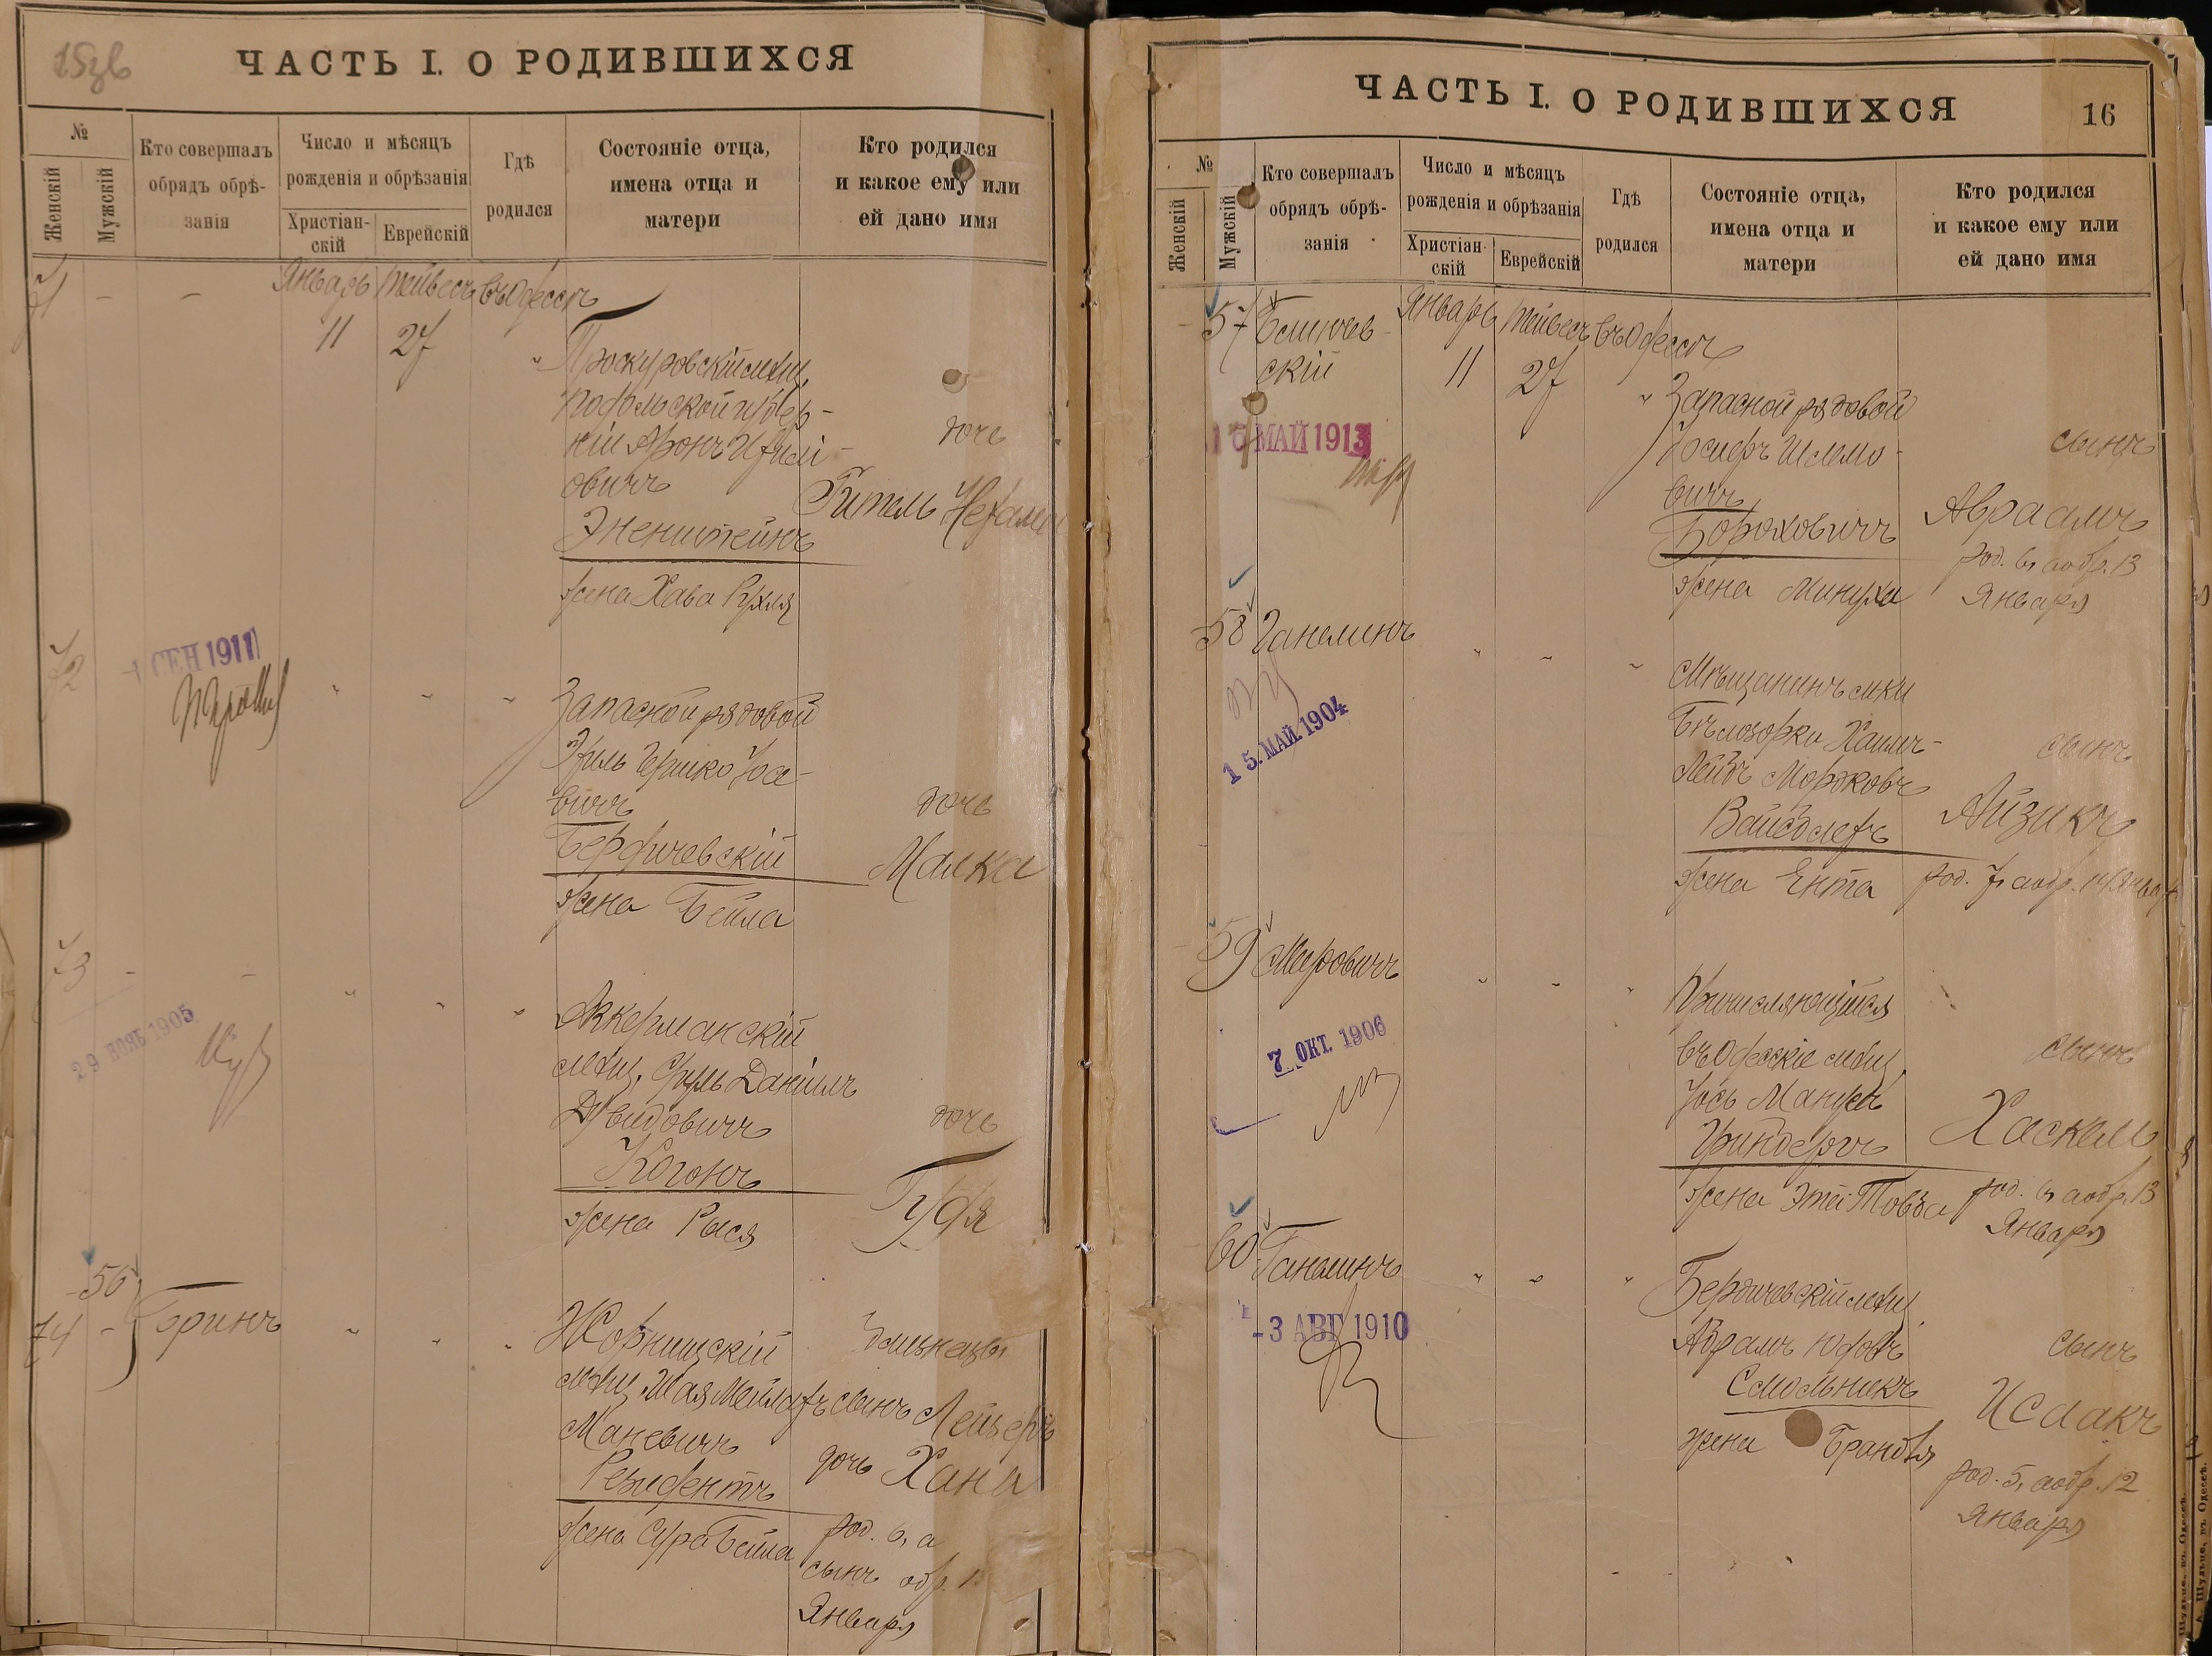 15зв
ЧАСТЬ I. О РОДИВШИХСЯ
№
Женскій
Мужскій
Кто совершалъ
обрядъ обрѣ-
занія
Число и мѣсяцъ
рожденія и обрѣзанія
Христіан-
скій
Еврейскій
Гдѣ
родился
Состояніе отца,
имена отца и
матери
Кто родился
и какое ему или
ей дано имя
71 - -
Январь Тейвесъ въ Одессѣ
11 27 "
Проскуровскій мѣщ.
Подольской губер-
ніи Аронъ
овичъ
Эненштейнъ
жена Хава Рухля
дочь
Гитель Нехама
72
1 СЕН 1911
" " "
Запасной рядовой
Эриль Гершко Іосе-
вичъ
Бердичевскій
жена Бейла
дочь
Малка
73 - -
29 НОЯБ 1905
" " "
Аккерманскій
мѣщ. Сруль Даніилъ
Дувидовичъ
Когонъ
жена Рыся
дочь
Гудя
56
74 -
Гринъ
" " "
Жорнищскій
мѣщ. Шая Мейлахъ
Маневичъ
Резидентъ
жена Сура Бейла
близнецы
сынъ Лейзеръ
дочь Хана
род. 6, а
сынъ обр.
Января
ЧАСТЬ I. О РОДИВШИХСЯ
16
№
Женскій
Мужскій
Кто совершалъ
обрядъ обрѣ-
занія
Число и мѣсяцъ
рожденія и обрѣзанія
Христіан-
скій
Еврейскій
Гдѣ
родился
Состояніе отца,
имена отца и
матери
Кто родился
и какое ему или
ей дано имя
57
скій
Январь Тейвесъ въ Одессѣ
11 27 "
16 МАЙ 1913
Запасной рядовой
Іосифъ Шлемо-
вичъ
Бороховичъ
жена Минуха
сынъ
Авраамъ
род. 6, а обр. 13
Января
58 Ганелинъ
" " "
15. МАЙ. 1904
Мѣщанинъ м-ки
Бѣлозорки Хаимъ-
Лейбъ Морзковъ
Вайсблатъ
жена Ента
сынъ
Айзикъ
род. 7, а обр. 14 Января
59 Меровичъ
" " "
7 ОКТ. 1906
Причисляющійся
въ Одесскіе мѣщ.
Іось Манусъ
Гринбергъ
жена Этя Товба
сынъ
Хаскель
род. 6, а обр. 13
Января
60 Ганелинъ
" " "
-3 АВГ 1910
Бердичевскій мѣщ.
Абрамъ Юдовъ
Смольникъ
жена Брандля
сынъ
Исаакъ
род. 5, а обр. 12
Января